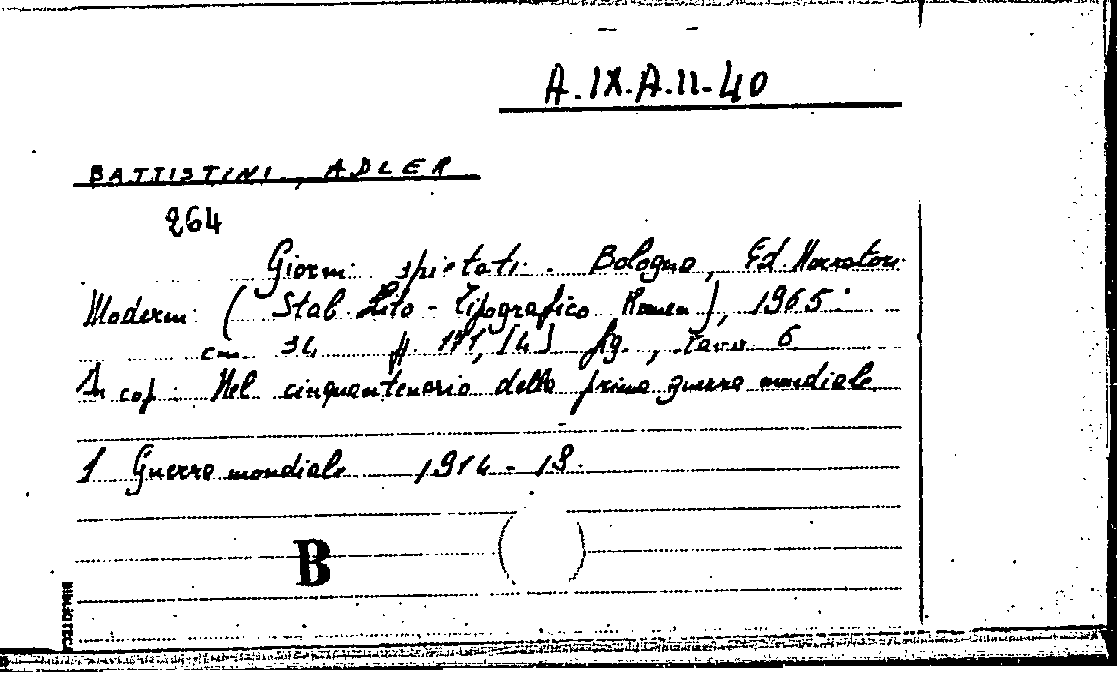 A.IX.A.11-40
BATTISTINI, ADLER
264
Giorni spietati. Bologna, Ed. Narratori
Moderni (Stab. Lito-Tipografico Romea), 1965.
cm. 34 pp. 111, [4] fig., tavv. 6
In cop.: Nel cinquantenario della prima guerra mondiale
1 Guerra mondiale 1914-18.
B